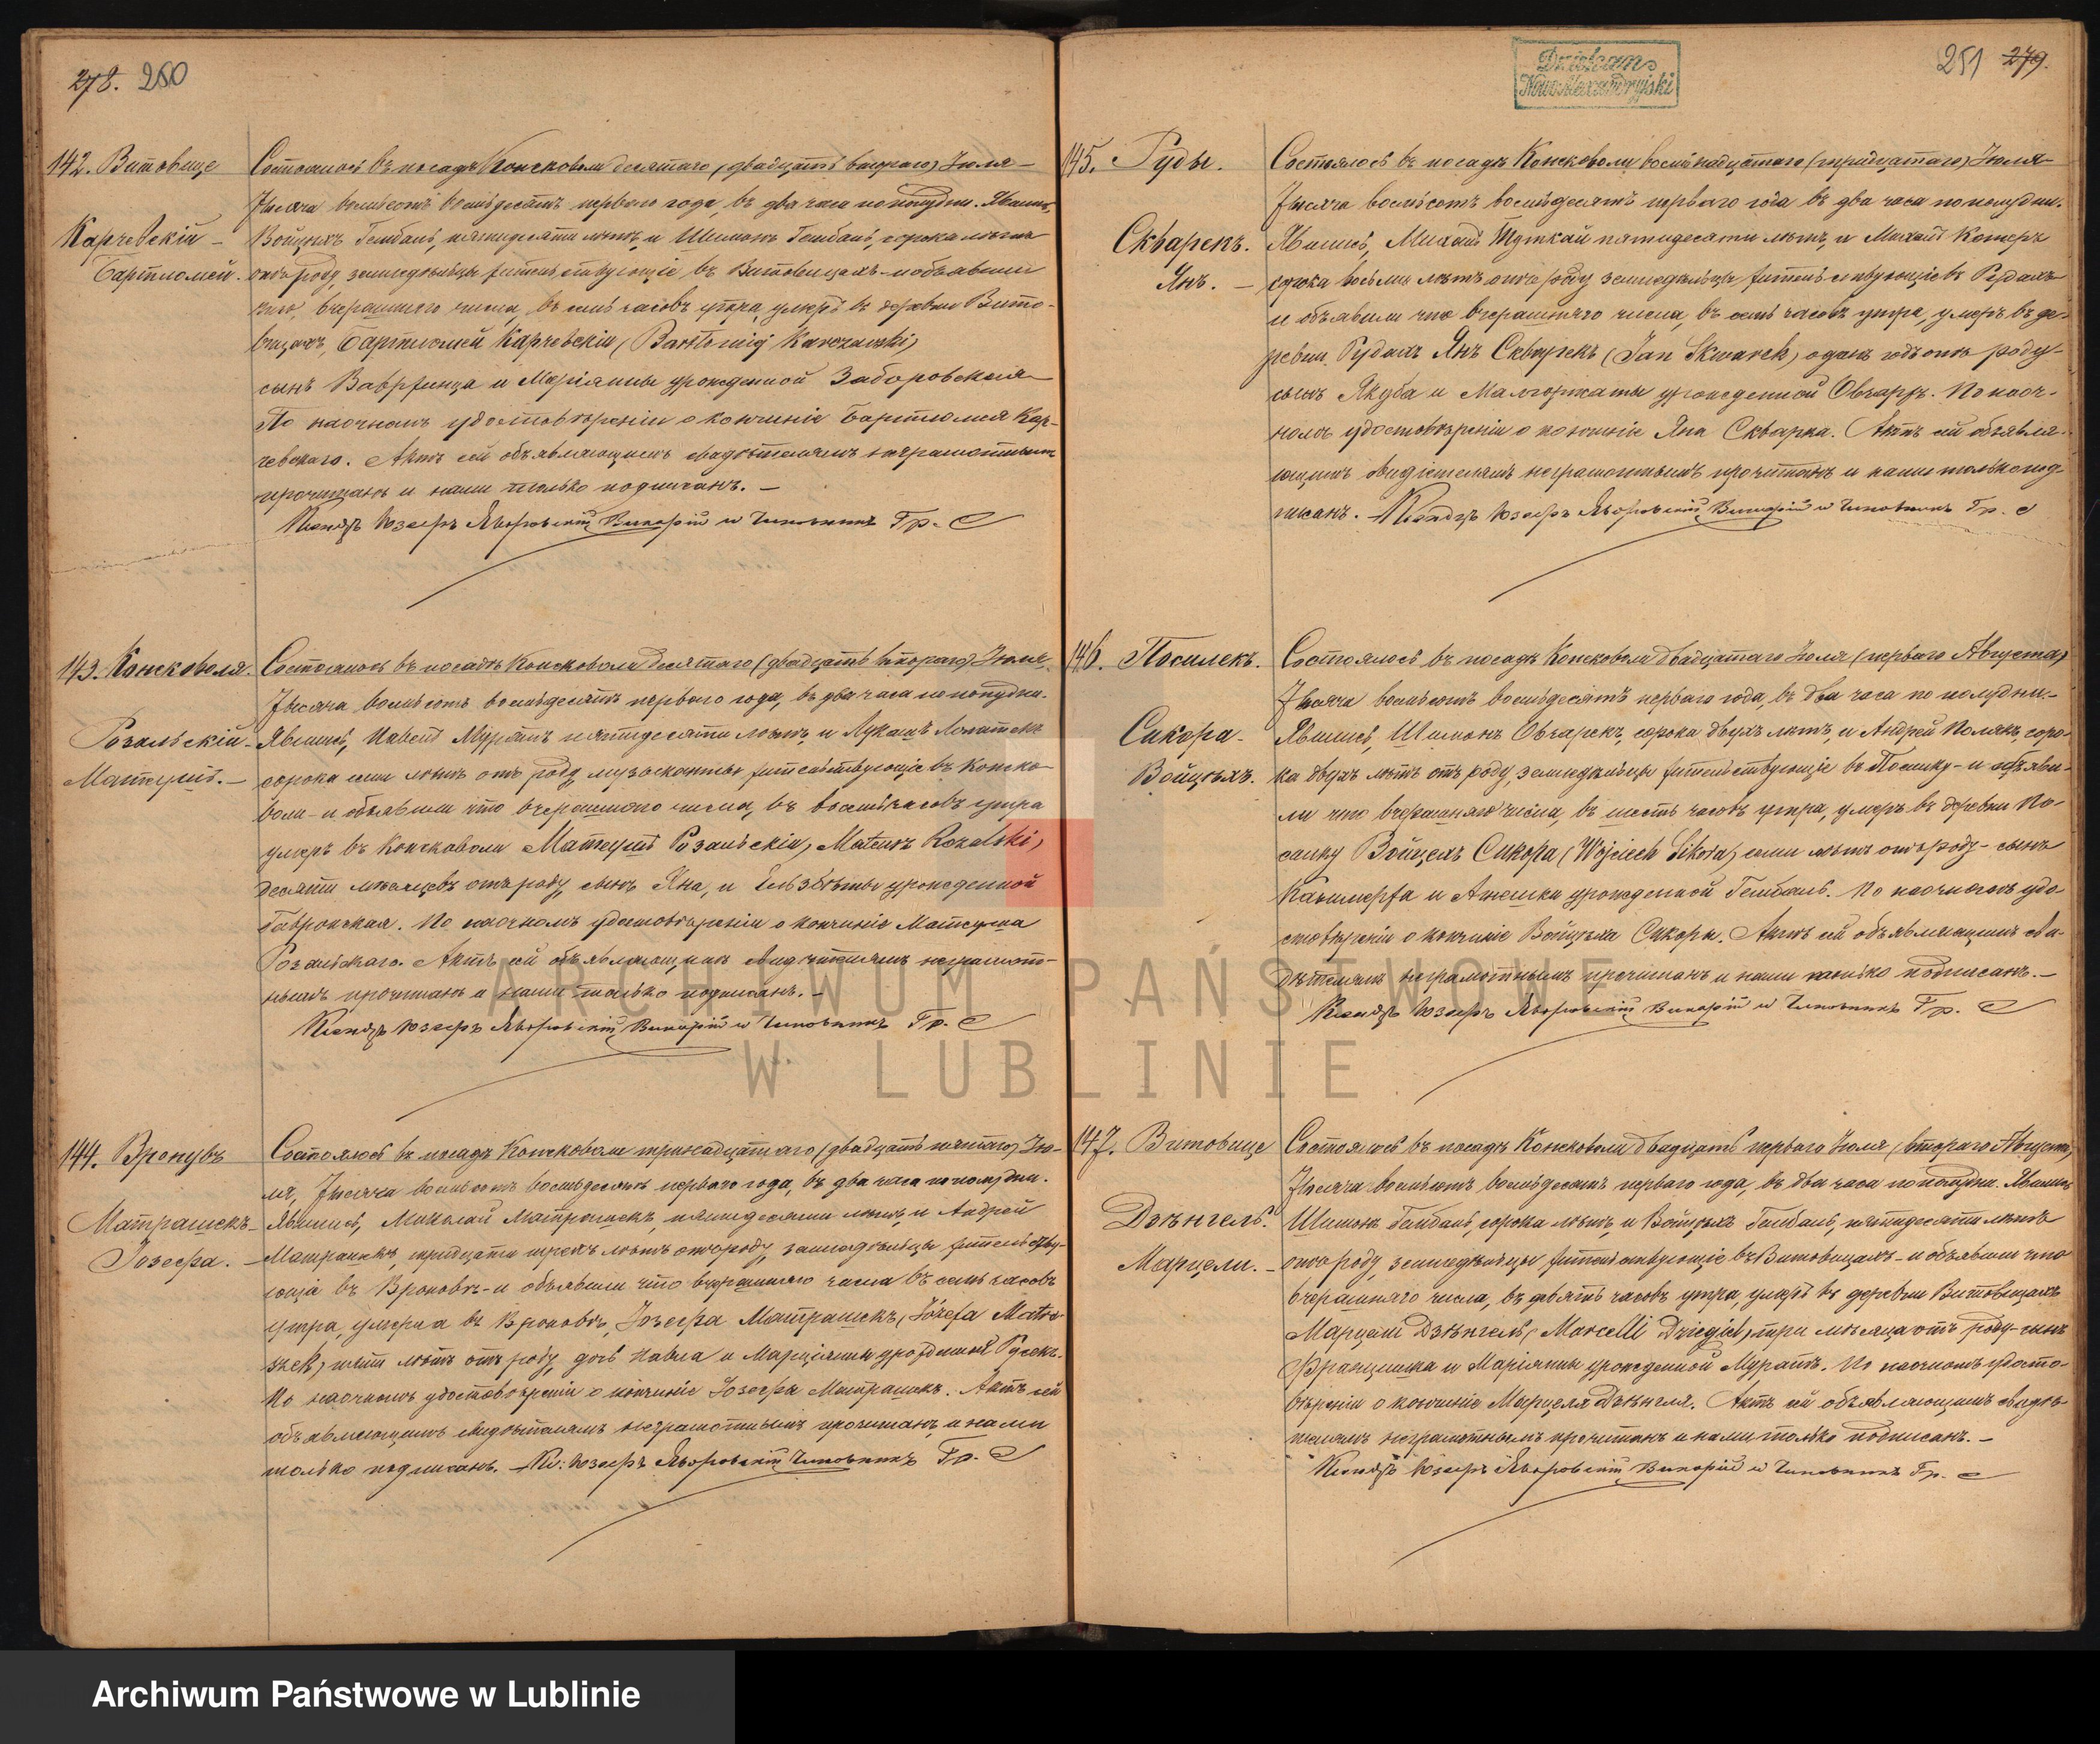 278. 280
142. Витовице
Карчевскій
Бартломей.
Состоялось въ посадѣ Консковоли десятаго (двадцать втораго) Іюля
тысяча восемьсотъ восемьдесятъ перваго года, въ два часа пополудни. Явились,
Войцѣхъ Гембаль, пятидесяти лѣтъ, и Шимонъ Гембаль, сорока лѣтъ
отъ роду, земледѣльцы жительствующіе въ Витовицахъ и объявили
что, вчерашняго числа, въ семь часовъ утра, умеръ въ деревни Вито-
вицахъ, Бартломей Карчевскій (Bartłomiej Karczewski)
сынъ Вавржинца и Маріянны урожденной Заборовская
По наочномъ удостовѣреніи о кончинѣ Бартломея Кар-
чевскаго. Актъ сей объявляющимъ свидѣтелямъ неграмотнымъ
прочитанъ и нами только подписанъ. —
Ксендзъ Юзефъ Яворовскій Викарій и Чиновникъ Гр. С
143. Консковоля.
Розальскій
Матеушъ. —
Состоялось въ посадѣ Консковоли десятаго (двадцать втораго) Іюля
тысяча восемьсотъ восемьдесятъ перваго года, въ два часа пополудни.
Явились, Павелъ Муратъ пятидесяти лѣтъ, и Лукашъ
сорока семи лѣтъ отъ роду, музыканты жительствующіе въ Конско-
воли - и объявили что вчерашняго числа, въ восемь часовъ утра
умеръ въ Консковоли Матеушъ Розальскій, (Mateusz Rozalski)
десяти мѣсяцевъ отъ роду, сынъ Яна, и Ельзбѣты урожденной
Гавронская. По наочномъ удостовѣреніи о кончинѣ Матеуша
Розальскаго. Актъ сей объявляющимъ свидѣтелямъ неграмот-
нымъ прочитанъ и нами только подписанъ. —
Ксендзъ Юзефъ Яворовскій Викарій и Чиновникъ Гр. С
144. Вронувъ
Матрашекъ
Іозефа. —
Состоялось въ посадѣ Консковоли тринадцатаго (двадцать пятаго) Ію-
ля, тысяча восемьсотъ восемьдесятъ перваго года, въ два часа пополудни.
Явились, Миколай Матрашекъ, пятидесяти лѣтъ, и Андрей
Матрашекъ, тридцати трехъ лѣтъ отъ роду, земледѣльцы жительству-
ющіе въ Вроновѣ - и объявили что вчерашняго числа въ семь часовъ
утра, умерла въ Вроновѣ, Іозефа Матрашекъ, (Józefa Matra-
szek) пяти лѣтъ отъ роду, дочь Павла и Марціянны урожденной Русекъ.
По наочномъ удостовѣреніи о кончинѣ Іозефы Матрашекъ. Актъ сей
объявляющимъ свидѣтелямъ неграмотнымъ прочитанъ, и нами
только подписанъ. — Кс: Юзефъ Яворовскій Чиновникъ Гр. С
Dziekan
NowoAlexandryjski
251 279.
145. Руды.
Скварекъ.
Янъ. —
Состоялось въ посадѣ Консковоли восемнадцатаго (тридцатаго) Іюля
тысяча восемьсотъ восемьдесятъ перваго года въ два часа пополудни.
Явились, Михалъ пятидесяти лѣтъ, и Михалъ
сорока восьми лѣтъ отъ роду земледѣльцы жительствующіе въ Рудахъ
и объявили что вчерашняго числа, въ семь часовъ утра, умеръ въ де-
ревни Рудахъ Янъ Скварекъ (Jan Skwarek) одинъ годъ отъ роду
сынъ Якуба и Малгоржаты урожденной Овчаржъ. По наоч-
номъ удостовѣреніи о кончинѣ Яна Скварка. Актъ сей объявля-
ющимъ свидѣтелямъ неграмотнымъ прочитанъ и нами только под-
писанъ. Ксендзъ Юзефъ Яворовскій Викарій и Чиновникъ Гр. С
146. Посилекъ.
Сикора
Войцѣхъ.
Состоялось въ посадѣ Консковоли двадцатаго Іюля (перваго Августа)
тысяча восемьсотъ восемьдесятъ перваго года, въ два часа по полудни. —
Явились, Шимонъ Овчарекъ, сорока двухъ лѣтъ, и Андрей Полякъ, соро-
ка двухъ лѣтъ отъ роду, земледѣльцы жительствующіе въ Посилку - и объяви-
ли что вчерашняго числа, въ шесть часовъ утра, умеръ въ деревни По-
силку Войцѣхъ Сикора (Wojciech Sikora) семи лѣтъ отъ роду - сынъ
Казимержа и Агнешки урожденной Гембаль. По наочномъ удо-
стовѣреніи о кончинѣ Войцѣха Сикоры. Актъ сей объявляющимъ сви-
дѣтелямъ неграмотнымъ прочитанъ и нами только подписанъ. —
Ксендзъ Юзефъ Яворовскій Викарій и Чиновникъ Гр. С
147. Витовице
Дзѣнгель.
Марцели. —
Состоялось въ посадѣ Консковоли двадцать перваго Іюля (втораго Августа)
тысяча восемьсотъ восемьдесятъ перваго года, въ два часа пополудни. Явились
Шимонъ Гембаль, сорока лѣтъ, и Войцѣхъ Гембаль, пятидесяти лѣтъ
отъ роду, земледѣльцы жительствующіе въ Витовицахъ - и объявили что
вчерашняго числа, въ девять часовъ утра, умеръ въ деревни Витовицахъ
Марцели Дзѣнгель, (Marcelli Dzięgiel) три мѣсяца отъ роду - сынъ
Францишка и Маріянны урожденной Муратъ. По наочномъ удосто-
вѣреніи о кончинѣ Марцеля Дзѣнгеля. Актъ сей объявляющимъ свидѣ-
телямъ неграмотнымъ прочитанъ и нами только подписанъ. —
Ксендзъ Юзефъ Яворовскій Викарій и Чиновникъ Гр. С
ARCHIWUM PAŃSTWOWE
W LUBLINIE
Archiwum Państwowe w Lublinie